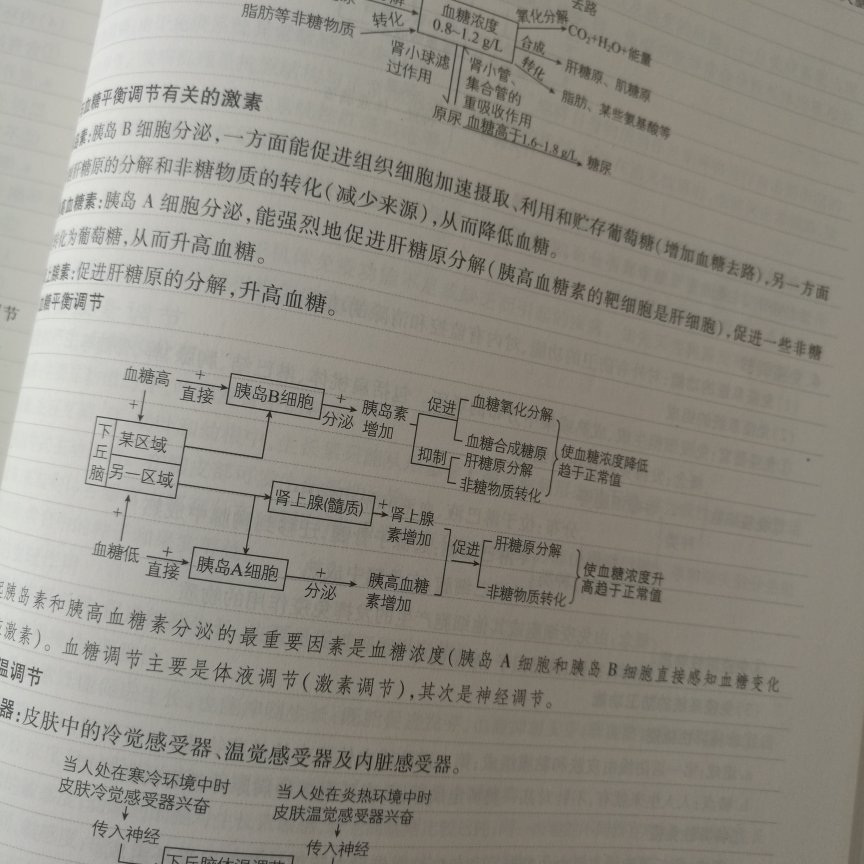 去路
脂肪等非糖物质 转化
血糖浓度
0.8~1.2 g/L
氧化分解 CO₂+H₂O+能量
合成 肝糖原、肌糖原
转化 脂肪、某些氨基酸等
肾小球滤
过作用
肾小管、
集合管的
重吸收作用
原尿 血糖高于1.6~1.8 g/L 糖尿
血糖平衡调节有关的激素
素:胰岛 B 细胞分泌,一方面能促进组织细胞加速摄取、利用和贮存葡萄糖(增加血糖去路),另一方面
肝糖原的分解和非糖物质的转化(减少来源),从而降低血糖。
高血糖素:胰岛 A 细胞分泌,能强烈地促进肝糖原分解(胰高血糖素的靶细胞是肝细胞),促进一些非糖
转化为葡萄糖,从而升高血糖。
上腺素:促进肝糖原的分解,升高血糖。
血糖平衡调节
节
血糖高 + 直接 胰岛B细胞 + 分泌 胰岛素
增加
促进 血糖氧化分解
血糖合成糖原
抑制 肝糖原分解
非糖物质转化
使血糖浓度降低
趋于正常值
+
下丘脑
某区域
另一区域
+
肾上腺(髓质) + 肾上腺
素增加
血糖低 + 直接 胰岛A细胞 + 分泌 胰高血糖
素增加
促进 肝糖原分解
非糖物质转化
使血糖浓度升
高趋于正常值
胰岛素和胰高血糖素分泌的最重要因素是血糖浓度(胰岛 A 细胞和胰岛 B 细胞直接感知血糖变化
激素)。血糖调节主要是体液调节(激素调节),其次是神经调节。
温调节
器:皮肤中的冷觉感受器、温觉感受器及内脏感受器。
当人处在寒冷环境中时
皮肤冷觉感受器兴奋
当人处在炎热环境中时
皮肤温觉感受器兴奋
传入神经
传入神经
下丘脑体温调节